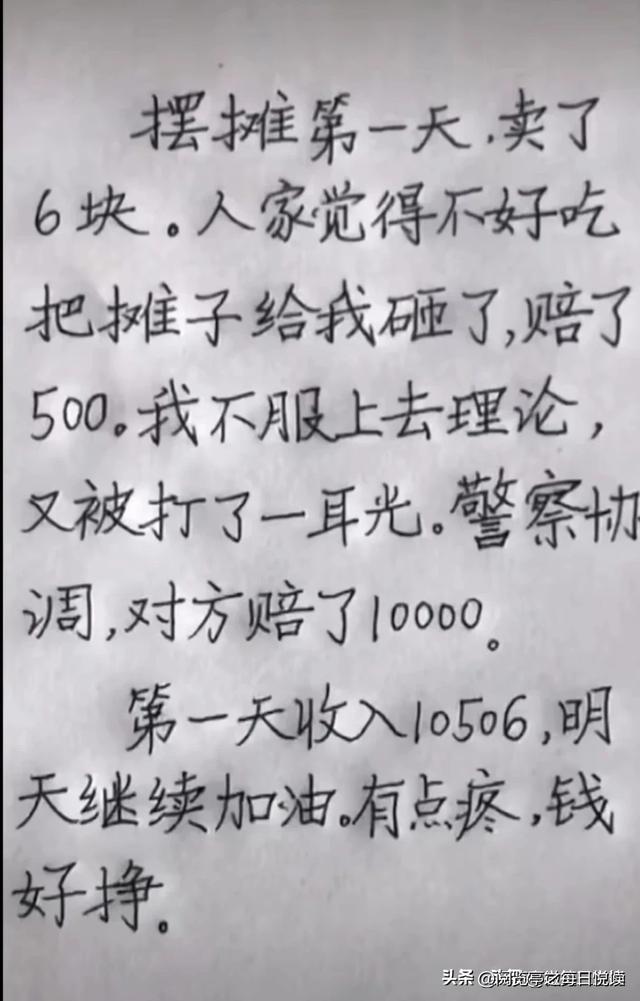 摆摊第一天,卖了
6块。人家觉得不好吃
把摊子给我砸了,赔了
500。我不服上去理论,
又被打了一耳光。警察协
调,对方赔了10000。
第一天收入10506,明
天继续加油。有点疼,钱
好挣。
头条 @
每日悦读